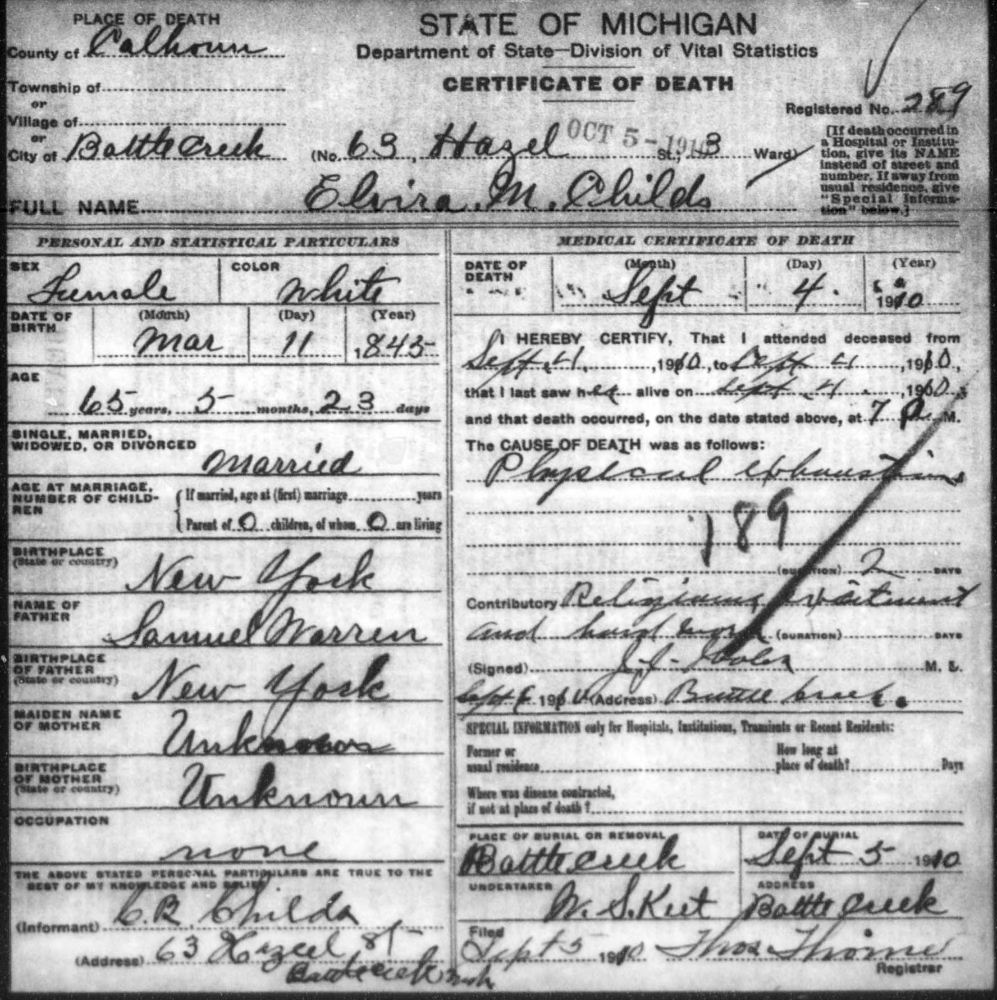 PLACE OF DEATH
County of Calhoun
Township of
or
Village of
or
City of Battle Creek
STATE OF MICHIGAN
Department of State—Division of Vital Statistics
CERTIFICATE OF DEATH
Registered No. 289
OCT 5 - 1910
(No. 63, Hazel St., 3 Ward)
[If death occurred in
a Hospital or Institu-
tion, give its NAME
instead of street and
number. If away from
usual residence, give
"Special Informa-
tion" below.]
FULL NAME Elvira M. Childs
PERSONAL AND STATISTICAL PARTICULARS
SEX
Female
COLOR
White
DATE OF
BIRTH
(Month) (Day) (Year)
Mar 11 1845
AGE
65 years, 5 months, 23 days
SINGLE, MARRIED,
WIDOWED, OR DIVORCED
Married
AGE AT MARRIAGE,
NUMBER OF CHILD-
REN
If married, age at (first) marriage years
Parent of 0 children, of whom 0 are living
BIRTHPLACE
(State or country)
New York
NAME OF
FATHER
Samuel Warren
BIRTHPLACE
OF FATHER
(State or country)
New York
MAIDEN NAME
OF MOTHER
Unknown
BIRTHPLACE
OF MOTHER
(State or country)
Unknown
OCCUPATION
none
THE ABOVE STATED PERSONAL PARTICULARS ARE TRUE TO THE
BEST OF MY KNOWLEDGE AND BELIEF
(Informant) C.R. Childs
(Address) 63 Hazel St
Battle Creek Mich
MEDICAL CERTIFICATE OF DEATH
DATE OF
DEATH
(Month) (Day) (Year)
Sept 4 1910
I HEREBY CERTIFY, That I attended deceased from
Sept 4, 1910, to Sept 4, 1910,
that I last saw her alive on Sept 4, 1910,
and that death occurred, on the date stated above, at 7 P M.
The CAUSE OF DEATH was as follows:
Physical exhaustion
189
(DURATION) 2 DAYS
Contributory Religious excitement
and hard work (DURATION) DAYS
(Signed) M. D.
Sept 6 1910 (Address) Battle Creek
SPECIAL INFORMATION only for Hospitals, Institutions, Transients or Recent Residents:
Former or
usual residence
How long at
place of death? Days
Where was disease contracted,
if not at place of death?
PLACE OF BURIAL OR REMOVAL
Battle Creek
DATE OF BURIAL
Sept 5 1910
UNDERTAKER
ADDRESS
Battle Creek
Filed
Sept 5 1910 Thos Thorne
Registrar